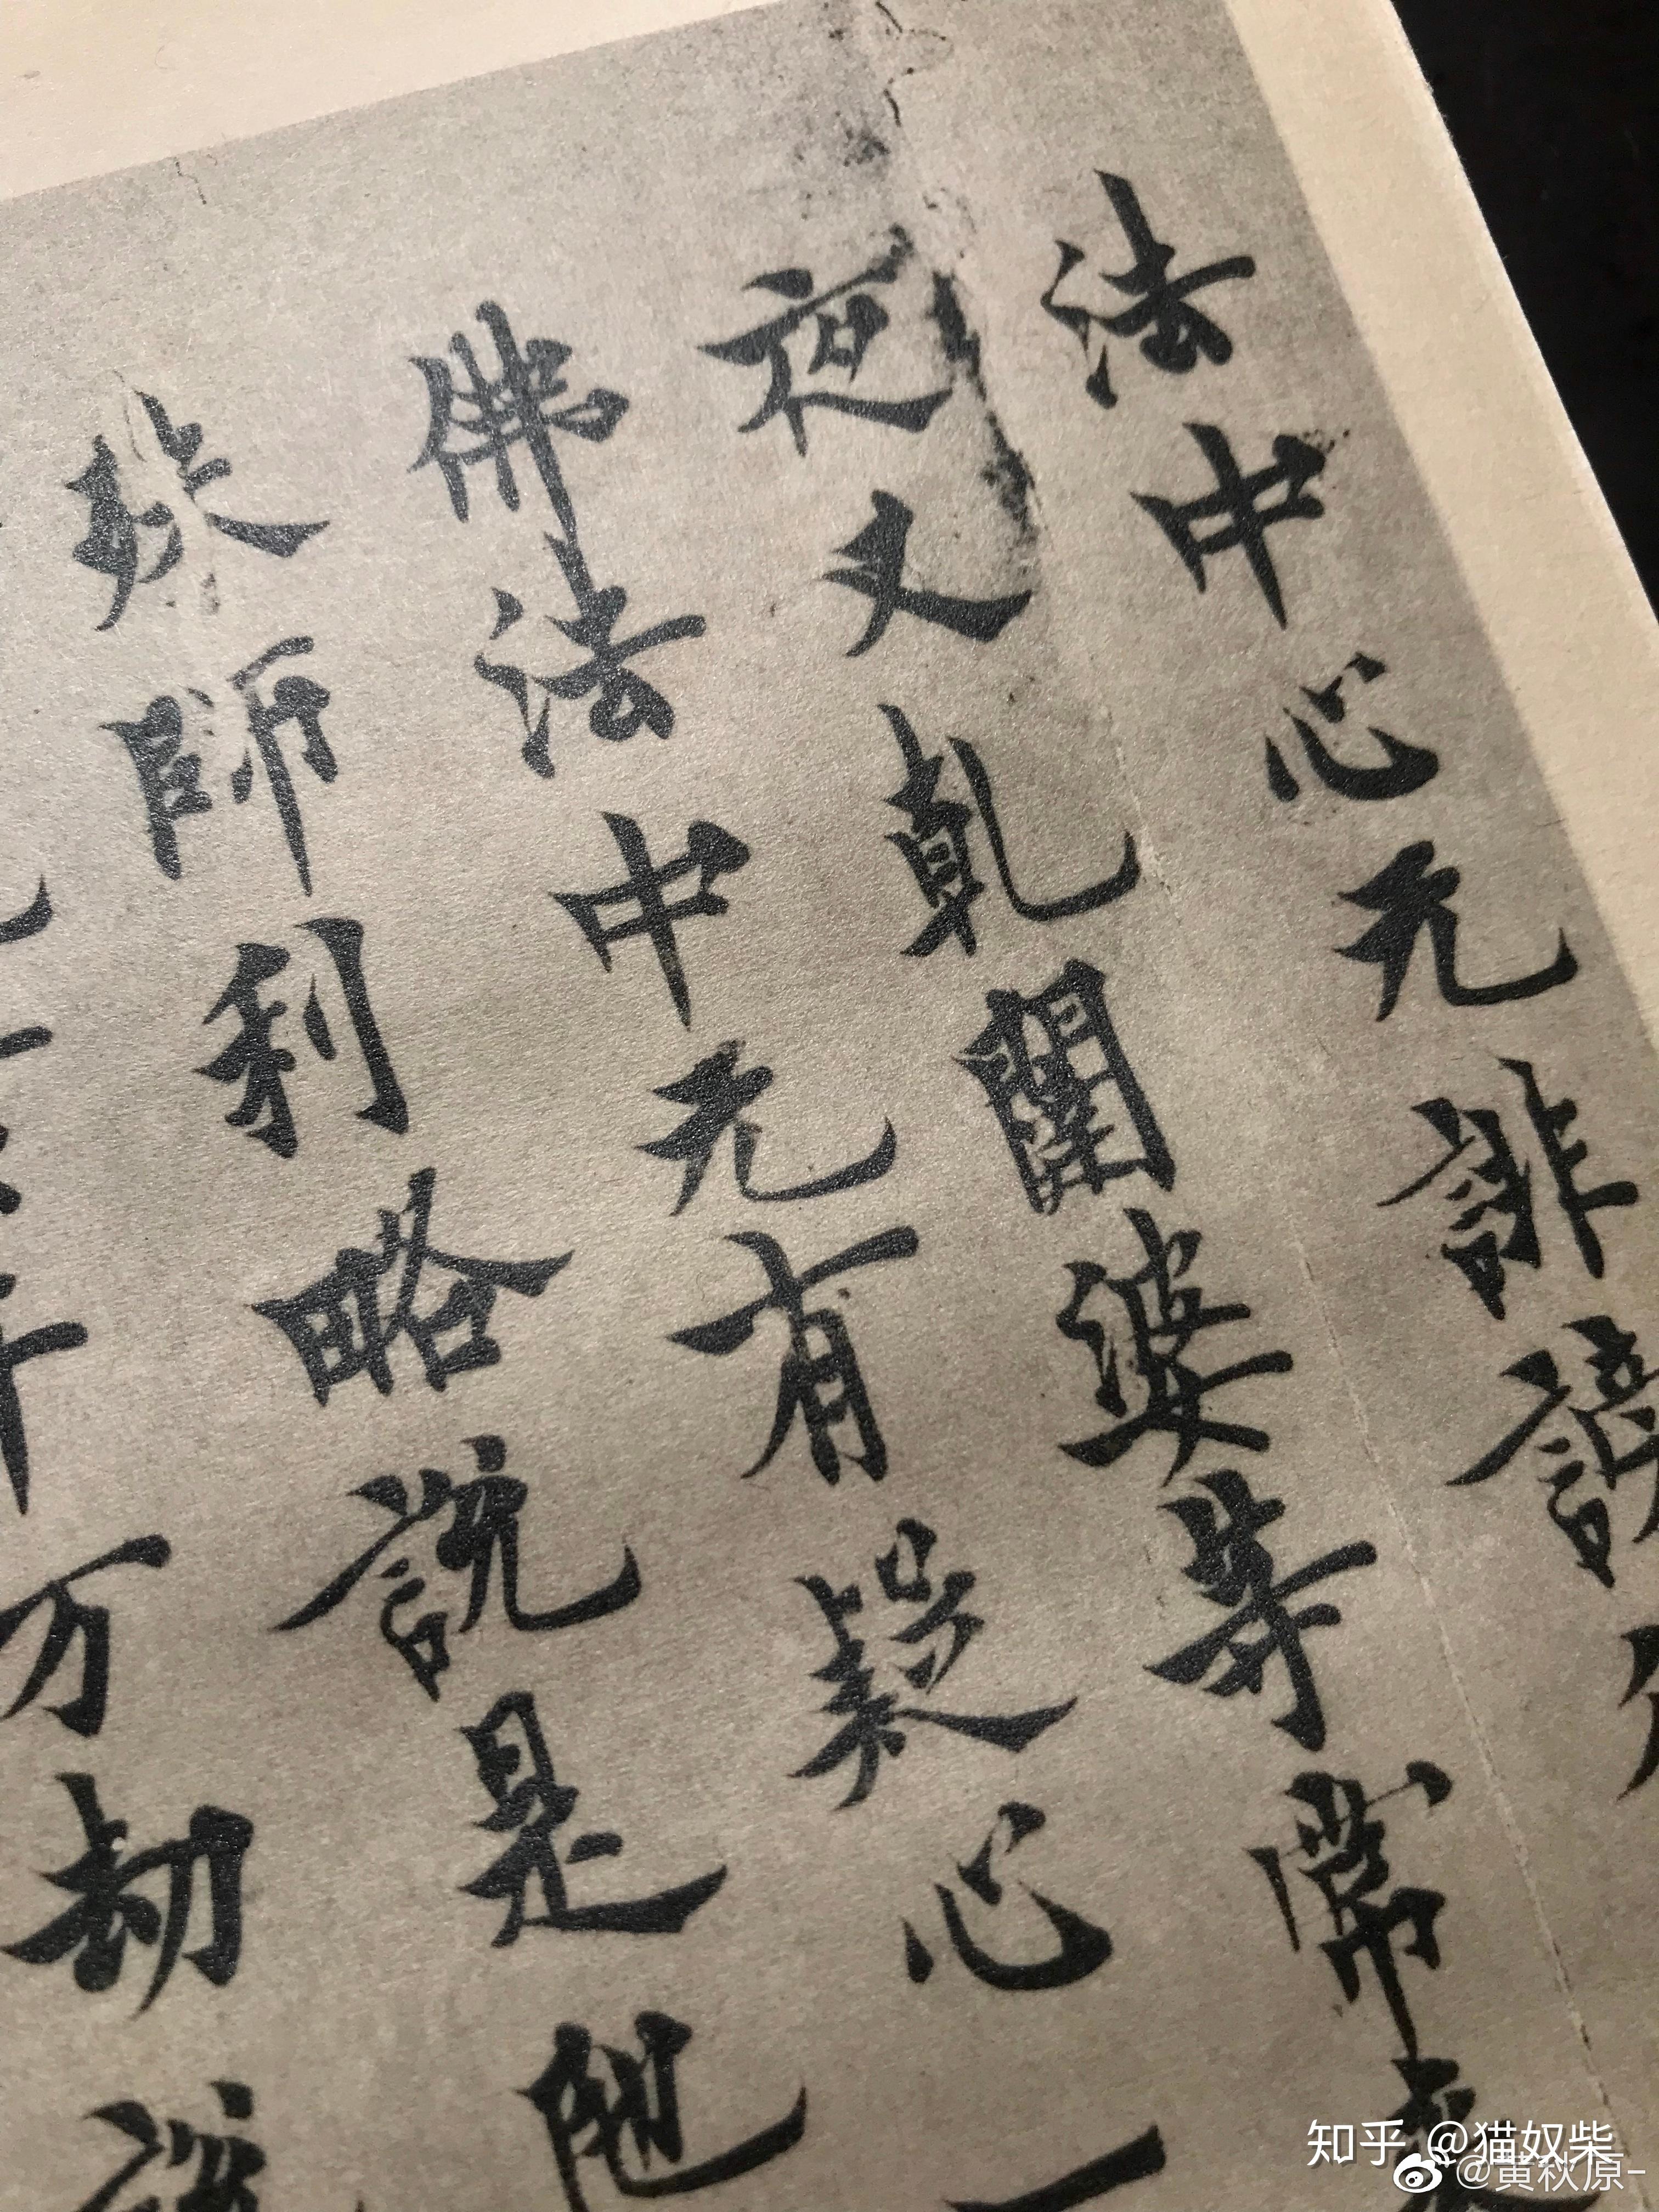 法中心无誹謗
夜叉乹闥婆等常
佛法中无有疑心一
殊師利略說是陀
万劫說
知乎 @猫奴柴
@黄秋原-